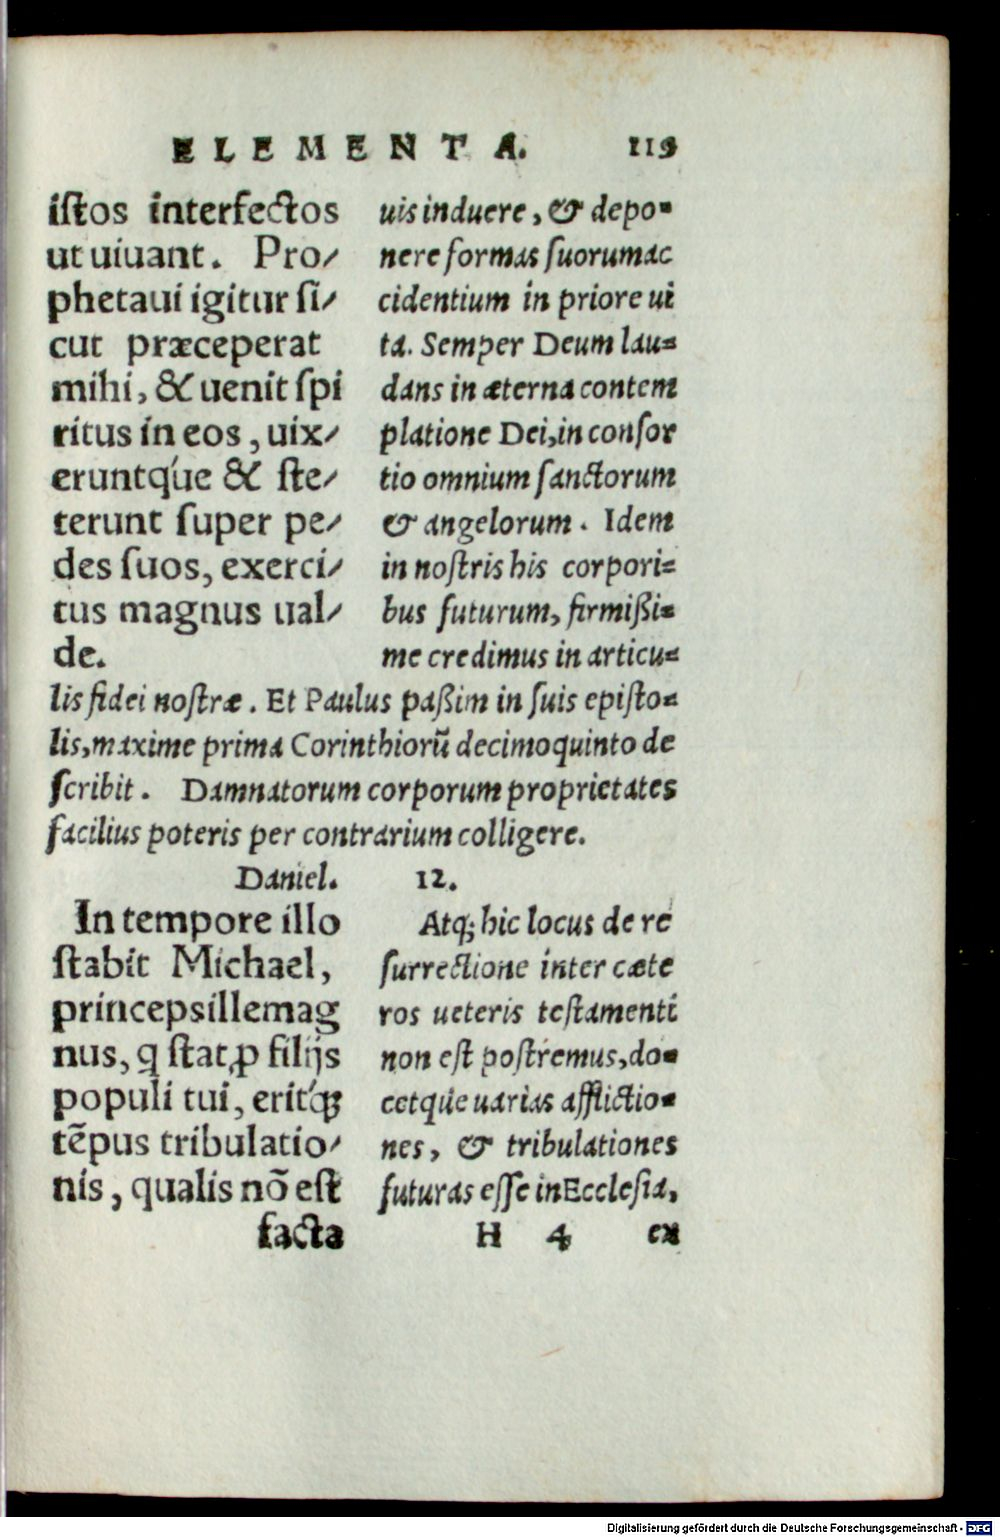 ELEMENTA. 119
iſtos interfectos
ut uiuant. Pro/
phetaui igitur ſi/
cut præceperat
mihi, & uenit ſpi
ritus in eos, uix/
eruntq́ue & ſte/
terunt ſuper pe/
des ſuos, exerci/
tus magnus ual/
de.
uis induere, & depo-
nere formas ſuorumac
cidentium in priore ui
ta. Semper Deum lau-
dans in æterna contem
platione Dei, in conſor
tio omnium ſanctorum
& angelorum. Idem
in noſtris his corpori-
bus futurum, firmißi-
me credimus in articu-
lis fidei noſtræ. Et Paulus paßim in ſuis epiſto-
lis, maxime prima Corinthiorũ decimoquinto de
ſcribit. Damnatorum corporum proprietates
facilius poteris per contrarium colligere.
Daniel. 12.
In tempore illo
ſtabit Michael,
princepsillemag
nus, q ſtat ꝓ filijs
populi tui, eritq́ꝫ
tẽpus tribulatio/
nis, qualis nõ eſt
facta
Atq; hic locus de re
ſurrectione inter cæte
ros ueteris teſtamenti
non eſt poſtremus, do-
cetq́ue uarias afflictio-
nes, & tribulationes
futuras eſſe inEccleſia,
H 4 ex
Digitalisierung gefördert durch die Deutsche Forschungsgemeinschaft - DFG